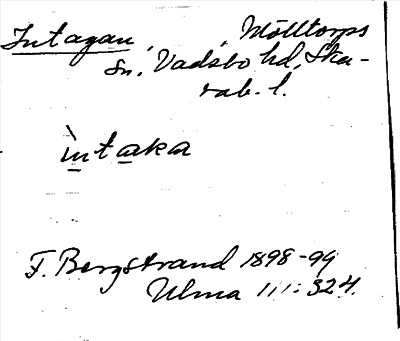 Intagan, Mölltorps
sn, Vadsbo hd, Ska-
rab. l.
ìntaka
F. Bergstrand 1898-99
Ulma 111:324.